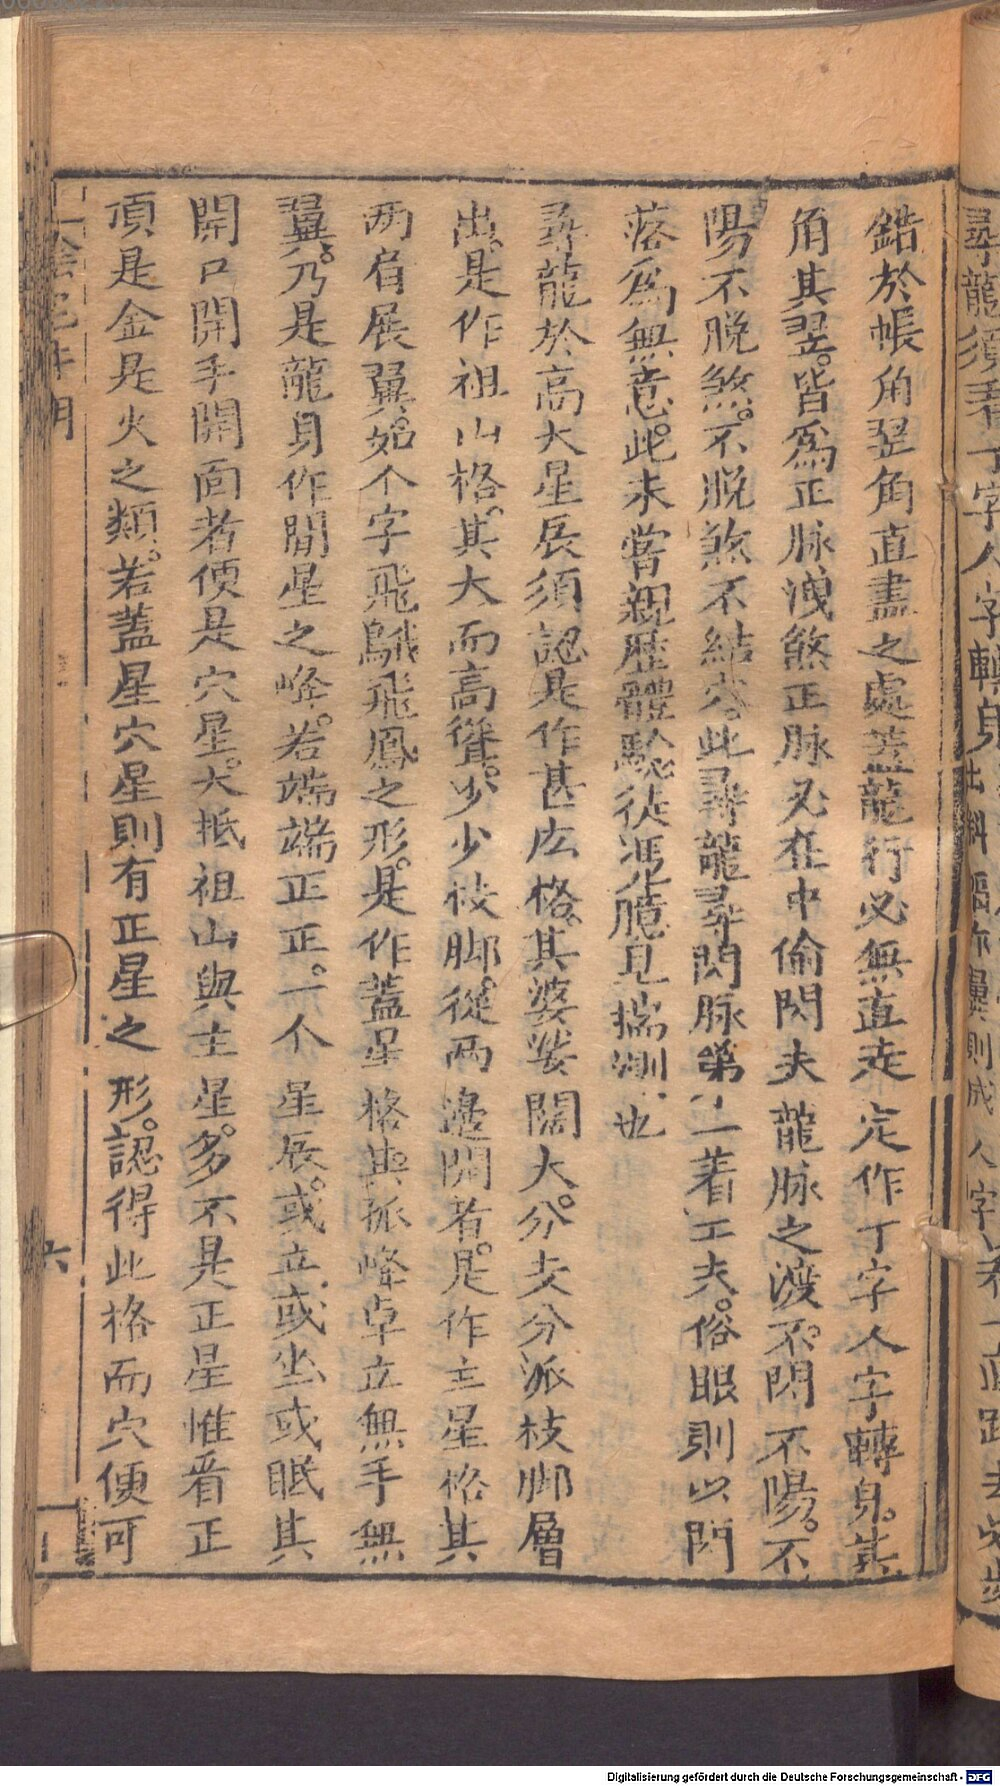 錯於帳角翌角直盡之處蓋龍行必無直走定作丁字人字轉身其
角其翌皆爲正脉洩煞正脉必在中偷閃夫龍脉之渡不閃不陽不
陽不脱煞不脱煞不結穴此尋龍尋閃脉第一着工夫俗眼則以閃
落爲無意此未嘗親歷體驗徒馮臆見揣測也
尋龍於高大星辰須認是作甚広格其婆娑闊大分支分派枝脚層
出是作祖山格其大而高聳少少枝脚從兩邊開者是作主星格其
兩肩展翼如个字飛鵝飛鳳之形是作蓋星格其孤峰卓立無手無
翼乃是龍身作閒星之峰若端端正正一个星辰或立或坐或眠其
開口開手開面者便是穴星大抵祖山與主星多不是正星惟看正
頂是金是火之類若蓋星穴星則有正星之形認得此格而穴便可
六
Digitalisierung gefördert durch die Deutsche Forschungsgemeinschaft - DFG